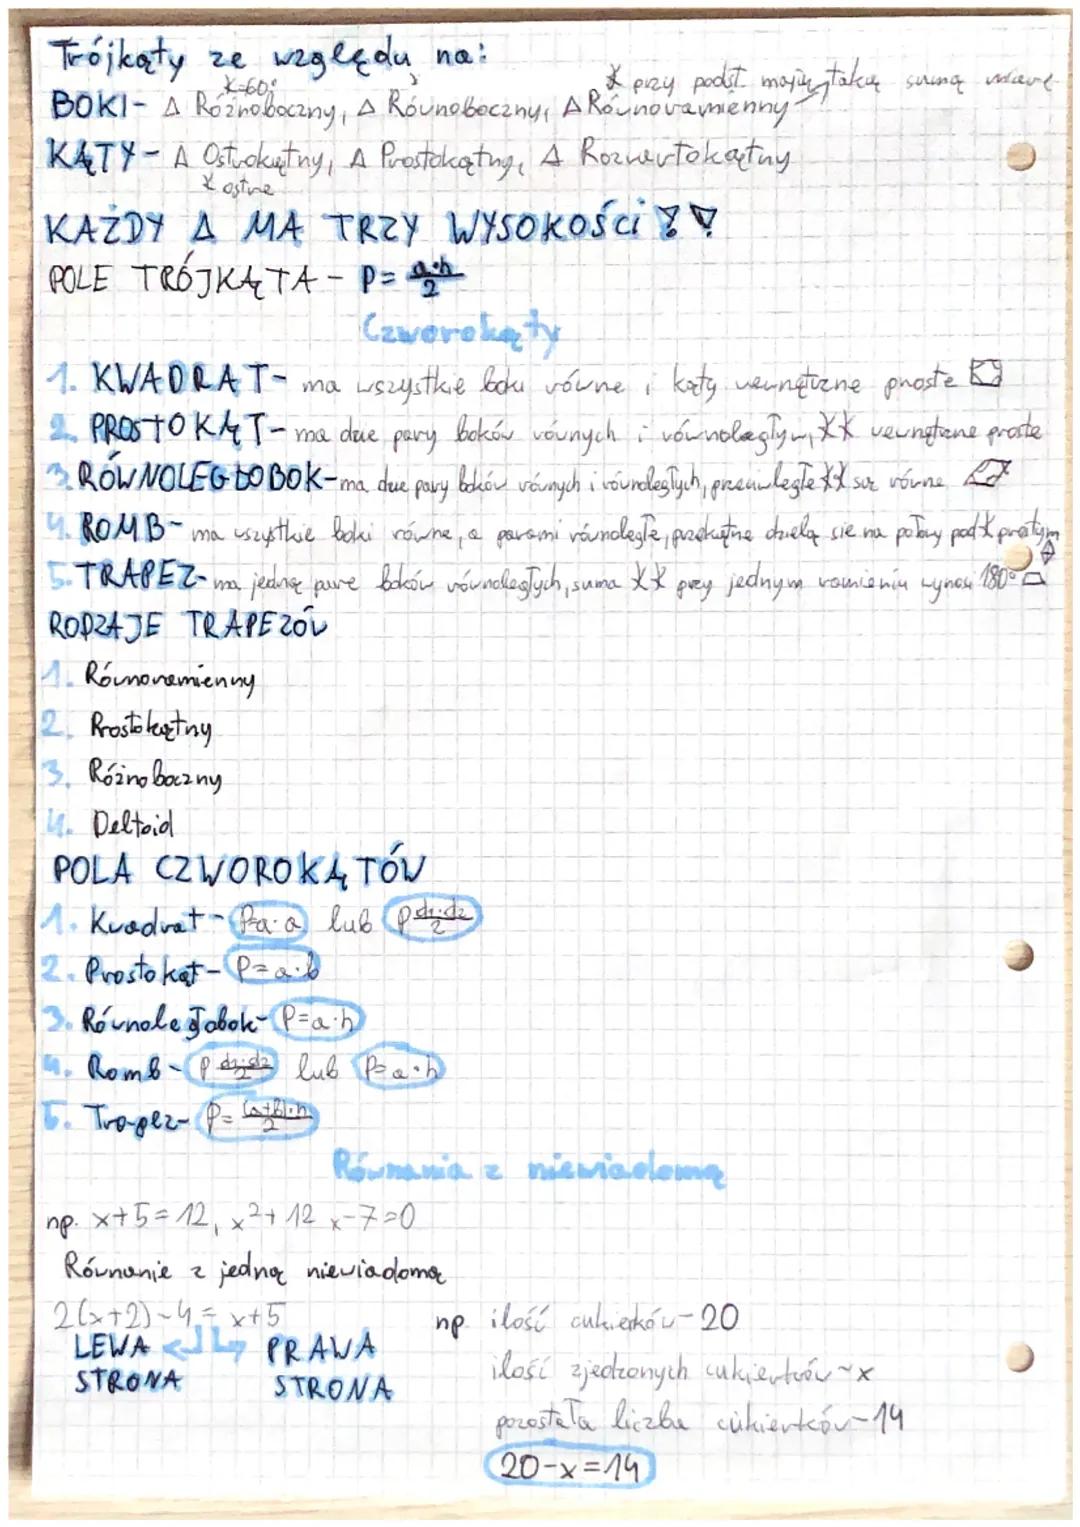 Trójkąty ze względu na:
∡=60°
∡ przy podst. mają taką samą miarę
BOKI- △ Różnoboczny, △ Równoboczny, △ Równoramienny
KĄTY- △ Ostrokątny, △ Prostokątny, △ Rozwartokątny
∡ ostre
KAŻDY △ MA TRZY WYSOKOŚCI !!
POLE TRÓJKĄTA - P= a·h/2
Czworokąty
1. KWADRAT- ma wszystkie boki równe i kąty wewnętrzne proste
2. PROSTOKĄT- ma dwie pary boków równych i równoległych, ∡∡ wewnętrzne proste
3. RÓWNOLEGŁOBOK- ma dwie pary boków równych i równoległych, przeciwległe ∡∡ są równe
4. ROMB- ma wszystkie boki równe, a parami równoległe, przekątne dzielą się na połowy pod ∡ prostym
5. TRAPEZ- ma jedną parę boków równoległych, suma ∡∡ przy jednym ramieniu wynosi 180°
RODZAJE TRAPEZÓW
1. Równoramienny
2. Prostokątny
3. Różnoboczny
4. Deltoid
POLA CZWOROKĄTÓW
1. Kwadrat- P=a·a lub P d1·d2/2
2. Prostokąt- P=a·b
3. Równoległobok- P=a·h
4. Romb- P d1·d2/2 lub P=a·h
5. Trapez- P= (a+b)·h/2
Równania z niewiadomą
np. x+5=12, x²+12x-7=0
Równanie z jedną niewiadomą
2(x+2)-4=x+5
LEWA STRONA
PRAWA STRONA
np. ilość cukierków-20
ilość zjedzonych cukierków-x
pozostała liczba cukierków-14
20-x=14